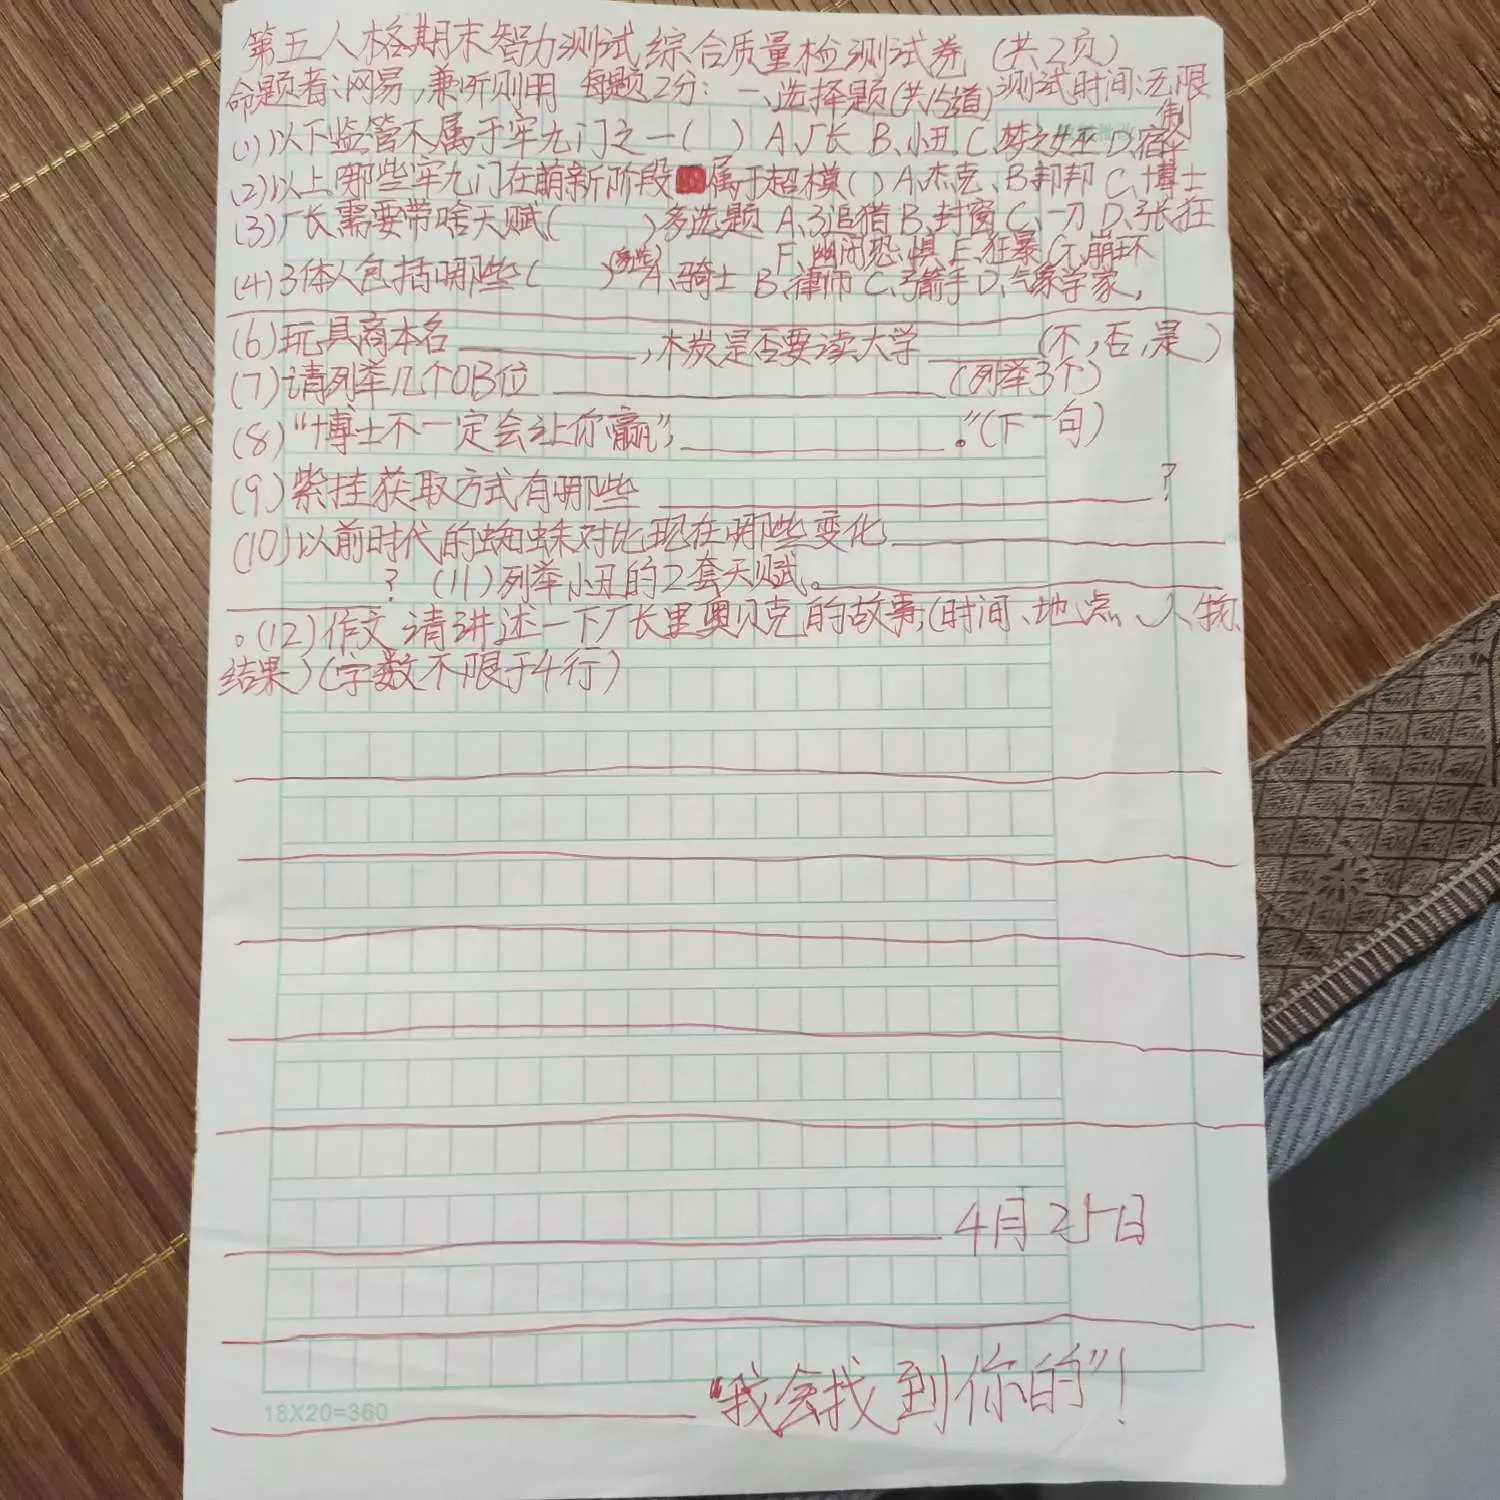 第五人格期末智力测试综合质量检测试券（共2页）
命题者：网易，兼听则用 每题2分： 一、选择题（共15道）测试时间：无限制
(1)以下监管不属于牢九门之一( ) A、厂长 B、小丑 C、梦之女巫 D、宿伞
(2)以上哪些牢九门在萌新阶段 属于超模( ) A、杰克、B、邦邦 C、博士
(3)厂长需要带啥天赋( )多选题 A、追猎 B、封窗 C、一刀 D、张狂
F、幽闭恐惧 E、狂暴 G、崩坏
(4)3体人包括哪些( )(多选) A、骑士 B、律师 C、弓箭手 D、气象学家，
(6)玩具商本名 ，木炭是否要读大学 (不，否，是)
(7)请列举几个OB位 (列举3个)
(8)“博士不一定会让你赢”， 。”(下一句)
(9)紫挂获取方式有哪些 ?
(10)以前时代的蜘蛛对比现在哪些变化
? (11)列举小丑的2套天赋。
。(12)作文 请讲述一下厂长里奥贝克的故事，(时间、地点、人物、
结果)(字数不限于4行)
4月25日
“我会找到你的”！
18X20=360